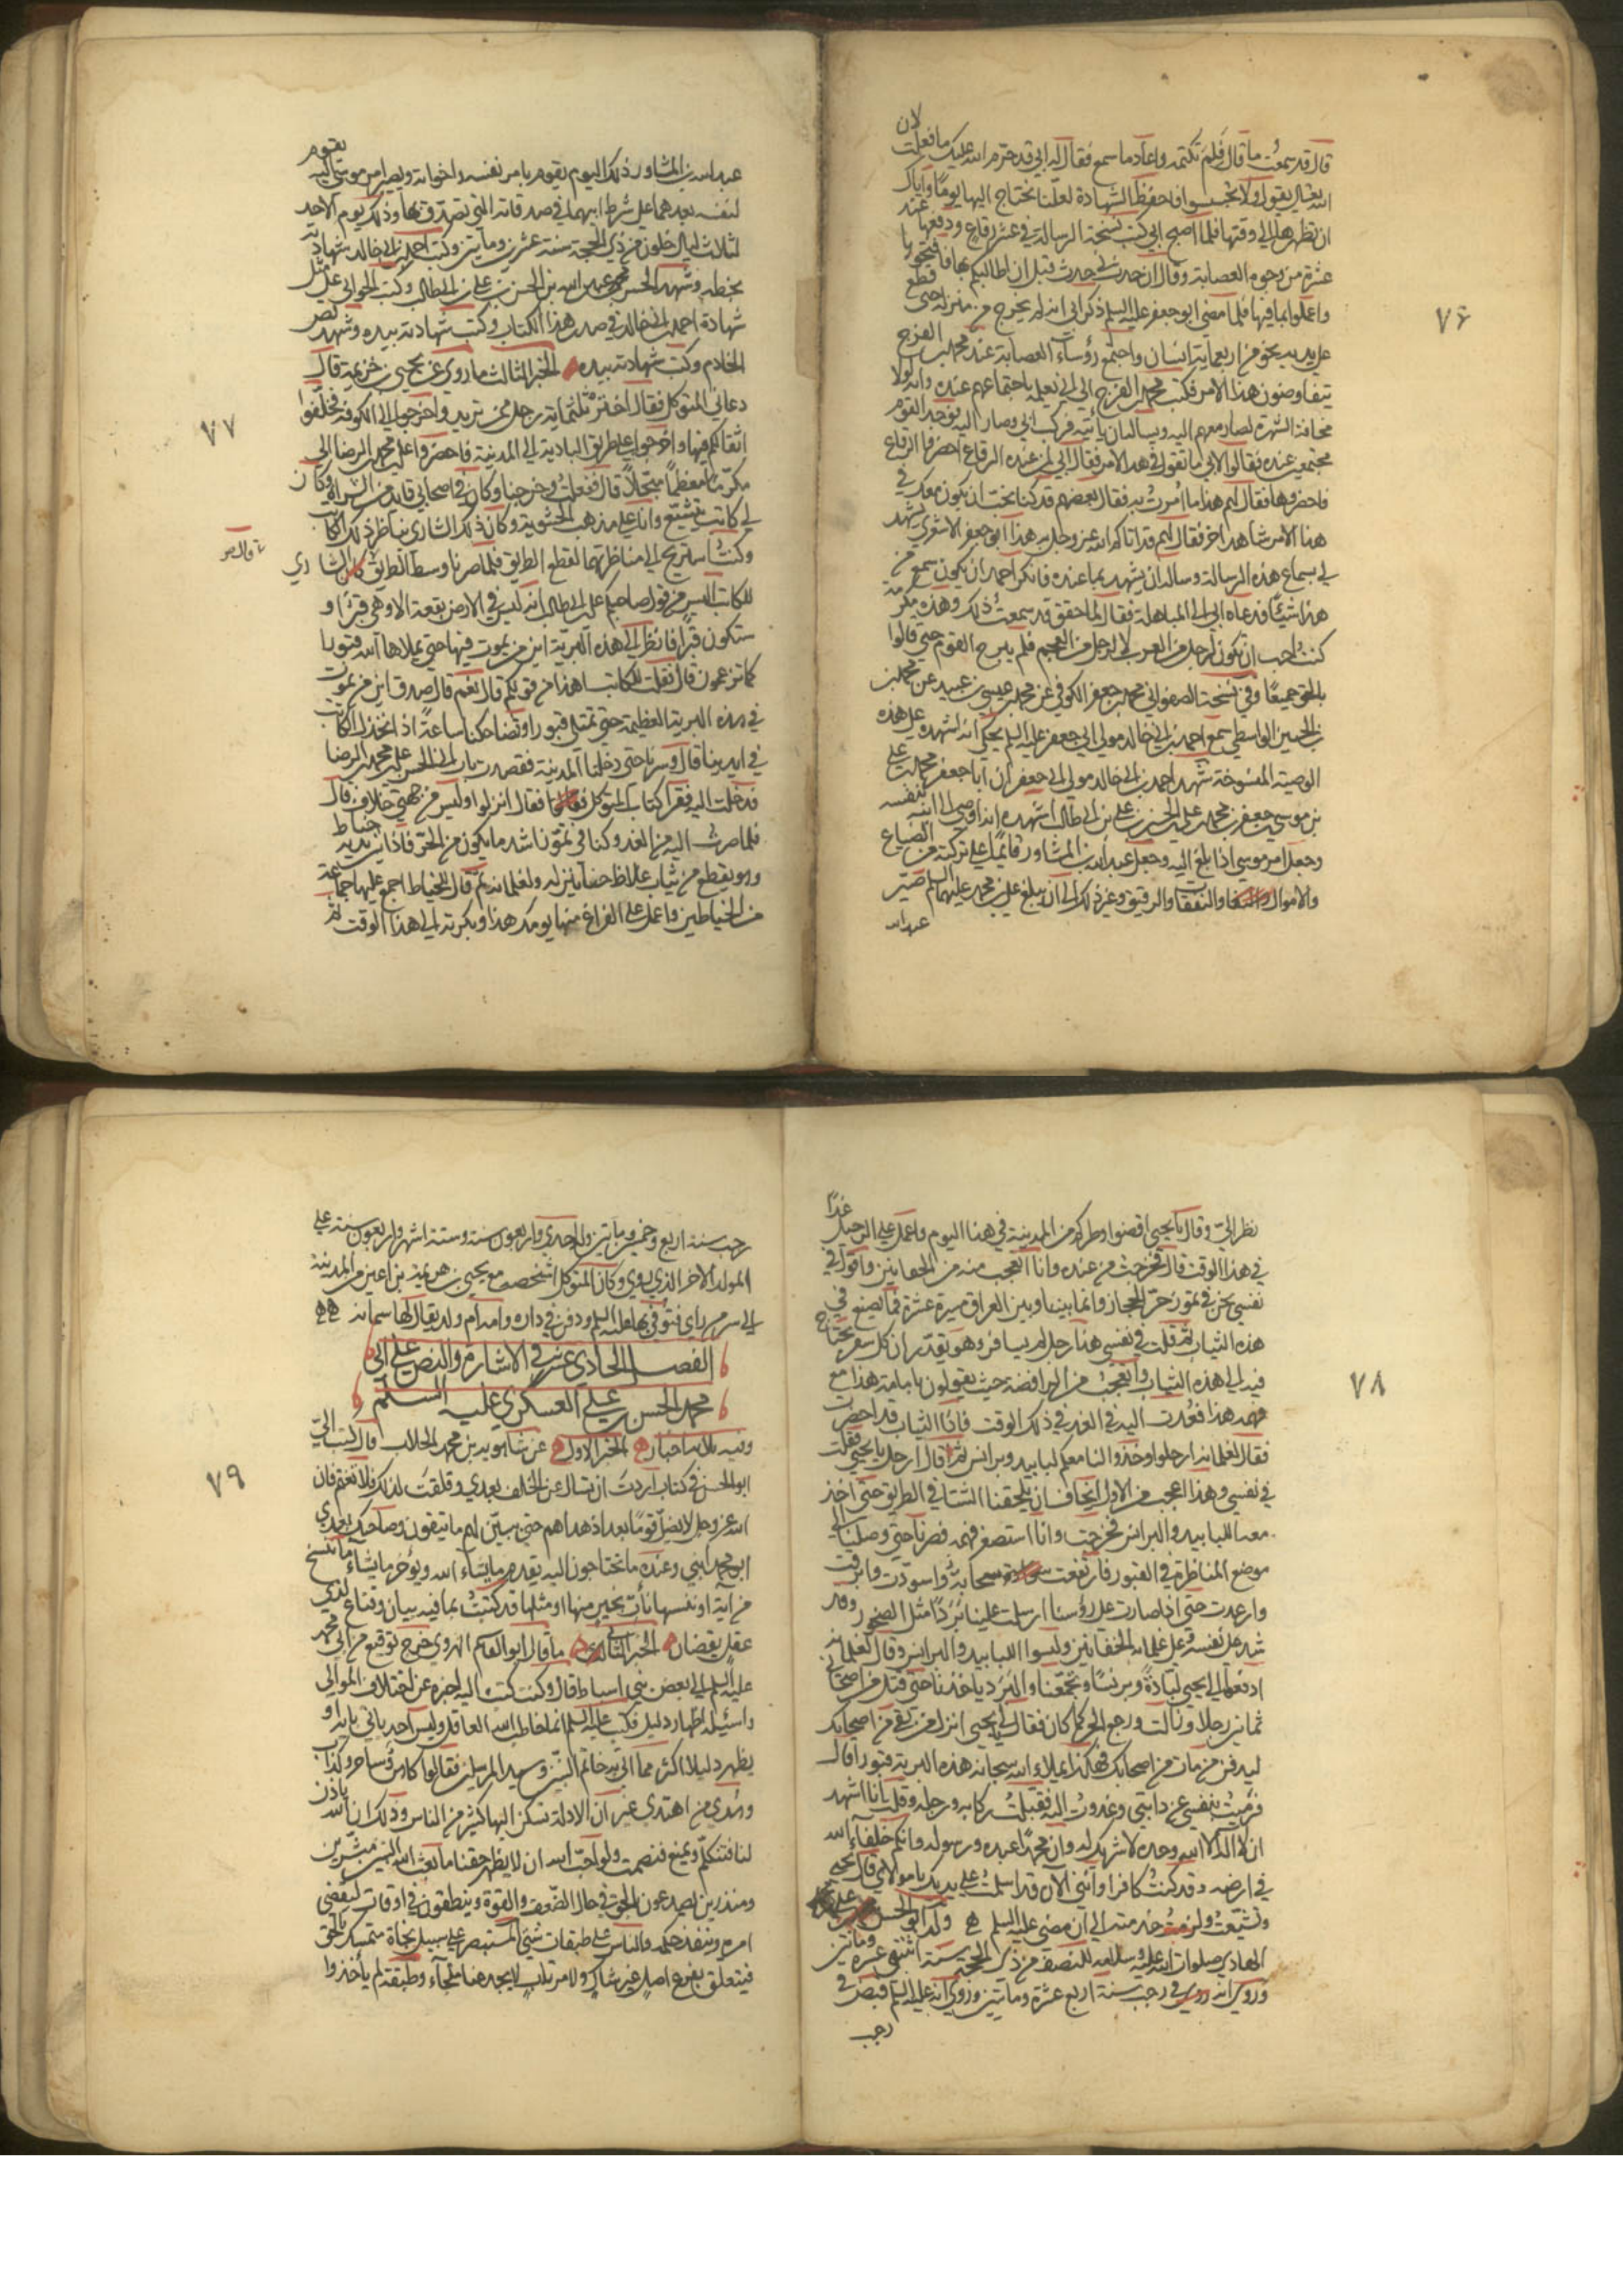 ٧٦
قال قد سمعت ما قال فلم تكتمه واعاد ما سمع فقال له ابي قد حرّم الله عليك ما فعلت لان
الله يقول ولا تجسسوا فاحفظ الشهادة لعلنا نحتاج اليها يوما واياك
ان تظهرها الى وقتها فلما اصبح ابي كتب نسخة الرسالة في عشر رقاع ودفعها عند
عشرة من وجوه العصابة وقال ان حدث بي حدث قبل ان اطالبكم بها فافتحوها
واعملوا بما فيها فلما مضى ابو جعفر عليه السلم ذكر ابي انه لم يخرج من منزله حتى قطع
على يديه نحو من اربعمائة انسان واجتمع رؤساء العصابة عند محمد بن الفرج
يتفاوضون هذا الامر فكتب محمد بن الفرج الى ابي يعلمه باجتماعهم عنده وانه لولا
مخافة الشهرة لصار معهم اليه ويساله ان يأتيه فركب ابي وصار اليه فوجد القوم
مجتمعين عنده فقالوا لابي ما تقول في هذا الامر فقال ابي لمن عنده الرقاع احضروا الرقاع
فاحضروها فقال لهم هذا ما امرت به فقال بعضهم قد كنا نحب ان يكون معك في
هذا الامر شاهد اخر فقال لهم قد اتاكم الله عز وجل به هذا ابو جعفر الاشعري يشهد
لي بسماع هذه الرسالة وساله ان يشهد بما عنده فانكر احمد ان يكون سمع من
هذا شيئا فدعاه ابي الى المباهلة فقال لما حقق قد سمعت ذلك وهذه مكرمة
كنت احب ان تكون لرجل من العرب لا لرجل من العجم فلم يبرح القوم حتى قالوا
بالحق جميعا وفي نسخة الصفواني محمد بن جعفر الكوفي عن محمد بن عيسى بن عبيد عن محمد بن
الحسين الواسطي سمع احمد بن ابي خالد مولى ابي جعفر عليه السلم يحكي انه اشهده على هذه
الوصية المنسوخة شهد احمد بن ابي خالد مولى ابي جعفر ان ابا جعفر محمد بن علي
بن موسى بن جعفر بن محمد بن علي بن الحسين بن علي بن ابي طالب اشهده انه اوصى الى ابنه بنفسه
وجعل امر موسى اذا بلغ اليه وجعل عبد الله بن المشاور قائما على تركته من الضياع
والاموال والنفقات والرقيق وغير ذلك الى ان يبلغ علي بن محمد عليهما السلم صيّر
عبد الله
٧٧
عبد الله بن المشاور ذلك اليوم يقوم بامر نفسه واخوانه ويصير امر موسى اليه يقوم
لنفسه بعدهما على شرط ابيهما في صدقاته التي تصدق بها وذلك يوم الاحد
لثلاث ليال خلون من ذي الحجة سنة عشرين ومأتين وكتب احمد بن ابي خالد شهادته
بخطه وشهد الحسن بن محمد بن عبد الله بن الحسن بن علي بن ابي طالب وكتب الجواني على مثل
شهادة احمد بن ابي خالد في صدر هذا الكتاب وكتب شهادته بيده وشهد نصر
الخادم وكتب شهادته بيده الخبر الثالث ما روي عن يحيى بن هرثمة قال
دعاني المتوكل فقال اختر ثلثمائة رجل ممن تريد واخرجوا الى الكوفة فخلّفوا
اثقالكم فيها واخرجوا على طريق البادية الى المدينة فاحضروا علي بن محمد بن الرضا الي
مكرّما معظما مبجّلا قال ففعلت وخرجنا وكان في اصحابي قايد من الشراة وكان
لي كاتب يتشيّع وانا على مذهب الحشوية وكان ذلك الشاري يناظر ذلك الكاتب
وكنت استريح الى مناظرتهما لقطع الطريق فلما صرنا وسط الطريق قال الشاري
للكاتب اليس من قول صاحبكم علي بن ابي طالب انه ليس في الارض بقعة الا وهي قبر او
ستكون قبرا فانظر الى هذه البريّة اين من يموت فيها حتى يملاها الله قبورا
كما تزعمون قال فقلت للكاتب اهذا من قولكم قال نعم قال صدق اين من يموت
في هذه البرية العظيمة حتى تمتلي قبورا وتضاحكنا ساعة اذ انخذل الكاتب
في ايدينا قال وسرنا حتى دخلنا المدينة فقصدت باب ابي الحسن علي بن محمد بن الرضا
فدخلت اليه فقرا كتاب المتوكل فقال انزلوا وليس من جهتي خلاف قال
فلما صرت اليه من الغد وكنا في تموز اشد ما يكون من الحرّ فاذا بين يديه خياط
وهو يقطع من ثياب غلاظ خفاتين له ولغلمانه ثم قال للخياط اجمع عليها جماعة
من الخياطين واعمل على الفراغ منها يومك هذا وبكر به الي هذا الوقت ثم
٧٨
نظر اليّ وقال يا يحيى اقضوا وطركم من المدينة في هذا اليوم واعمل على الرحيل غدا
في هذا الوقت قال فخرجت من عنده وانا اتعجب منه من الخفاتين واقول في
نفسي نحن في تموز وحرّ الحجاز وانما بيننا وبين العراق مسيرة عشرة فما يصنع في
هذه الثياب ثم قلت في نفسي هذا رجل لم يسافر وهو يقدّر ان كل سفر يحتاج
فيه الى هذه الثياب واتعجب من الرافضة حيث يقولون بامامة هذا مع
فهمه هذا فعدت اليه في الغد في ذلك الوقت فاذا الثياب قد احضرت
فقال لغلمانه ارحلوا وخذوا لنا معكم لبابيد وبرانس ثم قال ارحل يا يحيى فقلت
في نفسي وهذا اعجب من الاول ايخاف ان يلحقنا الشتا في الطريق حتى اخذ
معه اللبابيد والبرانس فخرجت وانا استصغر فهمه فصرنا حتى وصلنا الى
موضع المناظرة في القبور فارتفعت سحابة واسودّت وابرقت
وارعدت حتى اذا صارت على رؤسنا ارسلت علينا بَرَدا مثل الصخور وقد
شد على نفسه وعلى غلمانه الخفاتين ولبسوا اللبابيد والبرانس وقال لغلمانه
ادفعوا الى يحيى لبّادة وبرنسا وتجمّعنا والبَرَد ياخذنا حتى قتل من اصحابي
ثمانين رجلا وزالت ورجع الحر كما كان فقال لي يا يحيى انزل من بقي من اصحابك
ليدفن من مات من اصحابك فهكذا يملاء الله سبحانه هذه البرية قبورا قال
فرميت بنفسي عن دابتي وعدوت اليه فقبلت ركابه ورجله وقلت انا اشهد
ان لا اله الا الله وحده لا شريك له وان محمدا عبده ورسوله وانكم خلفاء الله
في ارضه وقد كنت كافرا وانني الآن قد اسلمت على يديك يا مولاي قال يحيى
وتشيّعت ولزمت خدمته الى ان مضى عليه السلم ولد ابو الحسن علي
الهادي صلوات الله عليه وسلامه للنصف من ذي الحجة سنة اثنتي عشرة ومأتين
وروي انه ولد في رجب سنة اربع عشرة ومأتين وروي انه عليه السلم قبض في
رجب
٧٩
رجب سنة اربع وخمسين ومأتين وله احدى واربعون سنة وستة اشهر واربعون سنة على
المولد الآخر الذي روي وكان المتوكل اشخصه مع يحيى بن هرثمة بن اعين من المدينة
الى سر من راى فتوفي بها عليه السلم ودفن في داره وامه ام ولد يقال لها سمانة
الفصل الحادي عشر في الاشارة والنص على ابي
محمد الحسن بن علي العسكري عليه السلم
وفيه ثلاثة اخبار الخبر الاول عن شاهويه بن محمد الجلاب قال كتب اليّ
ابو الحسن في كتاب اردت ان تسال عن الخلف بعدي وقلقت لذلك فلا تغتم فان
الله عز وجل لا يضل قوما بعد اذ هداهم حتى يبين لهم ما يتقون وصاحبك بعدي
ابو محمد ابني وعنده ما تحتاجون اليه يقدم ما يشاء الله ويؤخر ما يشاء ما ننسخ
من اية او ننسها نأت بخير منها او مثلها قد كتبت بما فيه بيان وقناع لذي
عقل يقظان الخبر الثاني ما قال ابو القاسم الهروي خرج توقيع من ابي محمد
عليه السلم الى بعض بني اسباط قال وكنت كتبت اليه اخبره عن اختلاف الموالي
واسئله اظهار دليل فكتب عليه السلم انما خاطب الله العاقل وليس احد ياتي بآية او
يظهر دليلا اكثر مما اتى به خاتم النبيين وسيد المرسلين فقالوا كاهن وساحر وكذاب
وهدي من اهتدى غير ان الادلة تسكن اليها كثير من الناس وذلك ان الله ياذن
لنا فنتكلم ويمنع فنصمت ولو احب الله ان لا يظهر حقنا ما بعث الله النبيين مبشرين
ومنذرين يصدعون بالحق في حال الضعف والقوة وينطقون في اوقات ليقضي
امره وينفذ حكمه والناس على طبقات شتى المستبصر على سبيل نجاة متمسك بالحق
فيتعلق بفرع اصل غير شاك ولا مرتاب لا يجد عنا ملجآء وطبقة لم يأخذوا